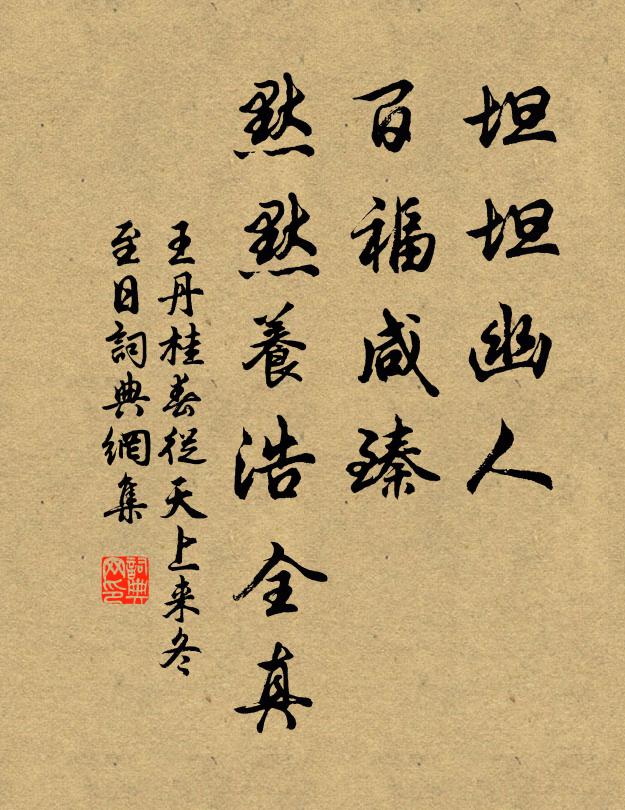 坦坦幽人
百福咸臻
默默養浩全真
王丹桂春從天上来冬
至日詞典網集
詞典网印